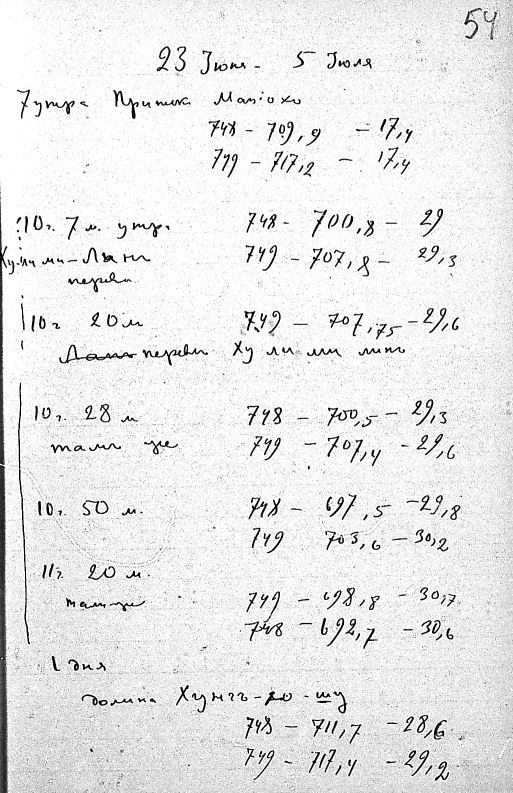 54
23 Июня - 5 Июля
7 утра Приток Мапіохэ
748 - 709,9 - 17,4
749 - 717,2 - 17,4
10 г. 7 м. утра 748 - 700,8 - 29
Хулими-Линъ 749 - 707,8 - 29,3
перевал
10 г. 20 м 749 - 707,75 - 29,6
перевал Ху ли ми линъ
10 г. 28 м 748 - 700,5 - 29,3
тамъ же 749 - 707,4 - 29,6
10 г. 50 м. 748 - 697,5 - 29,8
749 703,6 - 30,2
11 г. 20 м.
там же 749 - 698,8 - 30,7
748 - 692,7 - 30,6
1 дня
долина Хунгъ-хо-шу
748 - 711,7 - 28,6
749 - 717,4 - 29,2